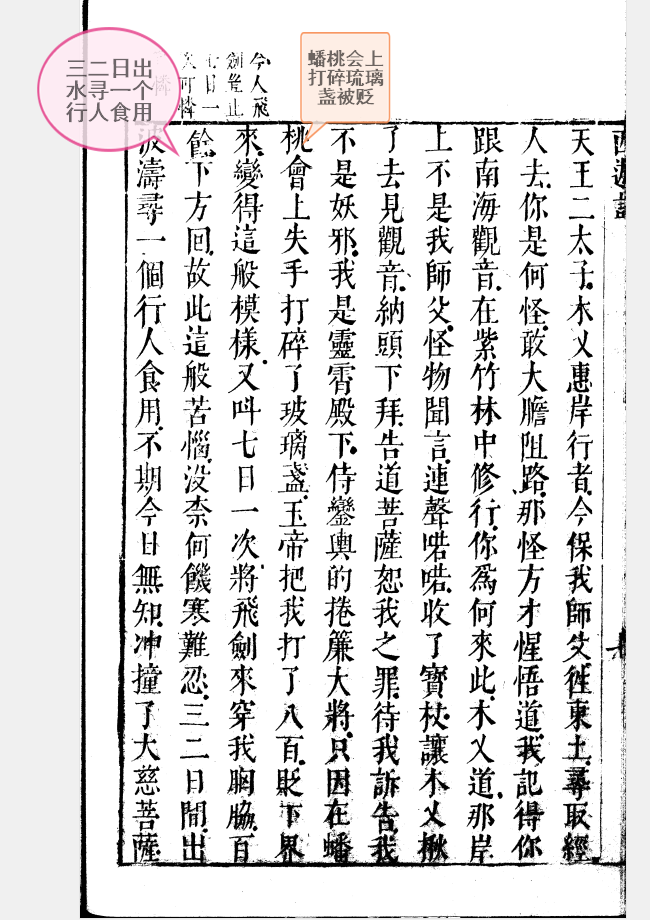 三二日出
水寻一个
行人食用
蟠桃会上
打碎琉璃
盏被贬
今人飛
劍豈止
七日一
西遊記
天王二太子木乂惠岸行者今保我師父徃東土尋取經
人去你是何怪敢大膽阻路那怪方才惺悟道我記得你
跟南海觀音在紫竹林中修行你爲何來此木乂道那岸
上不是我師父怪物聞言連聲喏喏收了寶杖讓木乂揪
了去見觀音納頭下拜告道菩薩恕我之罪待我訴告我
不是妖邪我是靈霄殿下侍鑾輿的捲簾大將只因在蟠
桃會上失手打碎了玻璃盞玉帝把我打了八百貶下界
來變得這般模樣又呌七日一次將飛劍來穿我胸脇百
餘下方回故此這般苦惱没柰何饑寒難忍三二日間出
波濤尋一個行人食用不期今日無知冲撞了大慈菩薩